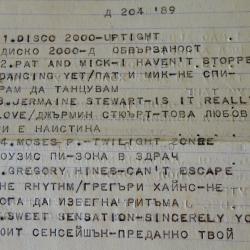 Д 204 '89
1.DISCO 2000-UPTIGHT
ДИСКО 2000-Д ОБВЪРЗАНОСТ
2.PAT AND MICK-I HAVEN'T STOPPE
DANCING YET/ПАТ И МИК-НЕ СПИ-
РАМ ДА ТАНЦУВАМ
3.JERMAINE STEWART-IS IT REALL
LOVE/ДЖЪРМИН СТЮЪРТ-ТОВА ЛЮБОВ
И Е НАИСТИНА
4.MOSES P.-TWILIGHT ZONE
ОУЗИС ПИ-ЗОНА В ЗДРАЧ
.GREGORY HINES-CAN'T ESCAPE
HE RHYTHM/ГРЕГЪРИ ХАЙНС-НЕ
ОГА ДА ИЗБЕГНА РИТЪМА
.SWEET SENSATION-SINCERELY YO
УИТ СЕНСЕЙШЪН-ПРЕДАННО ТВОЙ